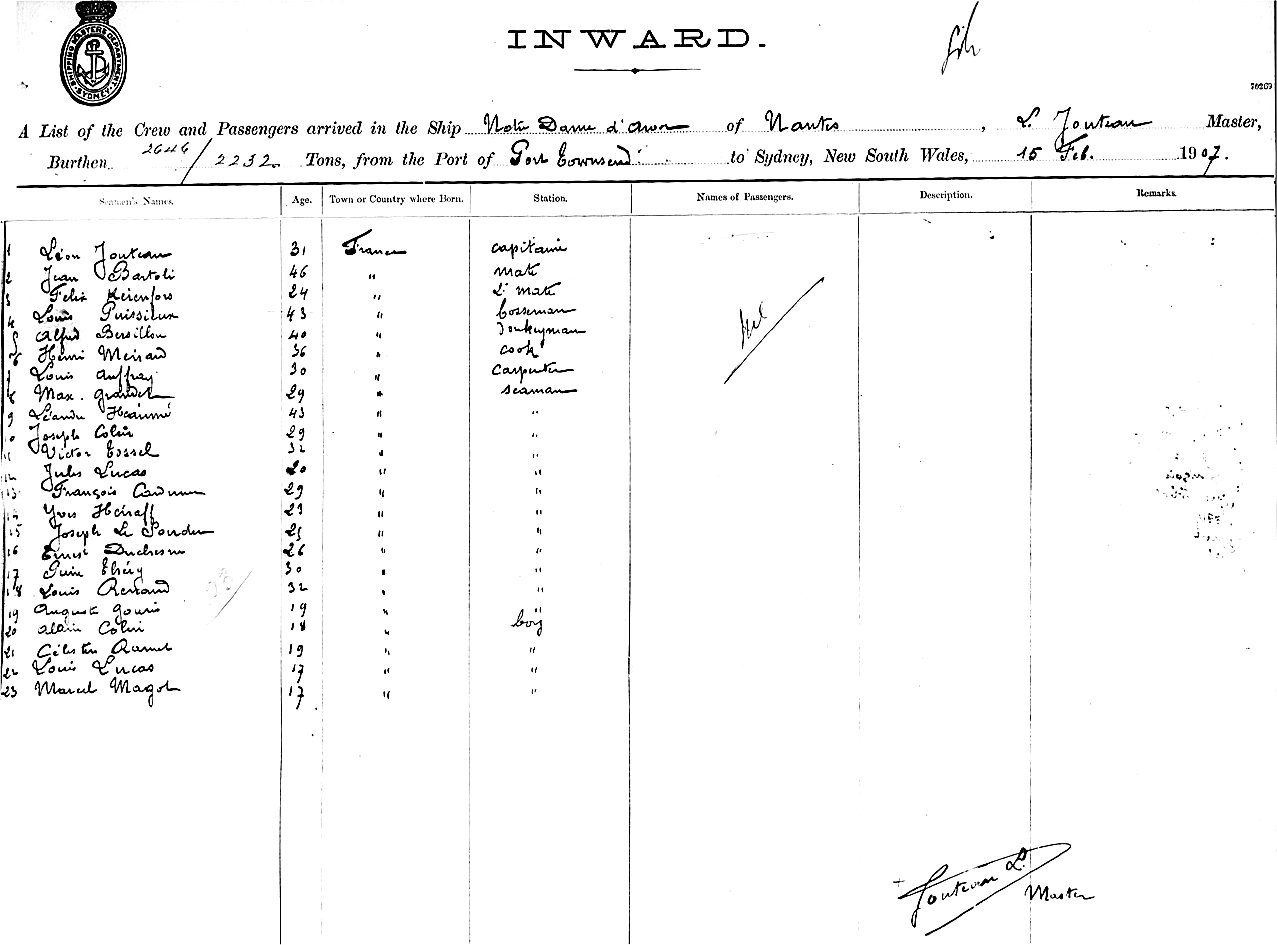 SHIPPING MASTERS DEPARTMENT SYDNEY
INWARD.
70269
A List of the Crew and Passengers arrived in the Ship Notre Dame d'Arvor of Nantes, L. Jouteau Master,
Burthen 2646/2232 Tons, from the Port of Port Townsend to Sydney, New South Wales, 15 Feb. 1907.
Seamen's Names. Age. Town or Country where Born. Station. Names of Passengers. Description. Remarks.
1 Léon Jouteau 31 France capitaine
2 Jean Bartoli 46 " mate
3 Felix 24 " 2d mate
4 Louis Puissieux 43 " bosseman
5 Alfred Bersillon 40 " Donkeyman
6 Henri Meinard 36 " cook
7 Louis Auffray 30 " carpenter
8 Max. Grandet 29 " seaman
9 Léandre Heaumé 43 " "
10 Joseph Colin 29 " "
11 Victor Essel 32 " "
12 Jules Lucas 20 " "
13 François 29 " "
14 Yves 23 " "
15 Joseph Le 25 " "
16 Ernest Duchesne 26 " "
17 30 " "
18 Louis 32 " "
19 August Gouris 19 " "
20 Alain Colin 18 " boy
21 Célestin Ramel 19 " "
22 Louis Lucas 17 " "
23 Marcel Magot 17 " "
Nil
Jouteau L.
Master